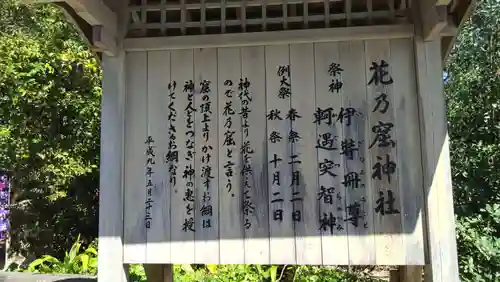 花乃窟神社
祭神
伊弉冊尊
軻遇突智神
例大祭
春祭 二月二日
秋祭 十月二日
神代の昔より花を供えて祭る
ので花窟と言う。
窟の頂上よりかけ渡すお綱は
神と人をつなぎ神の恵を授
けてくださるお綱なり。
平成九年五月二十三日